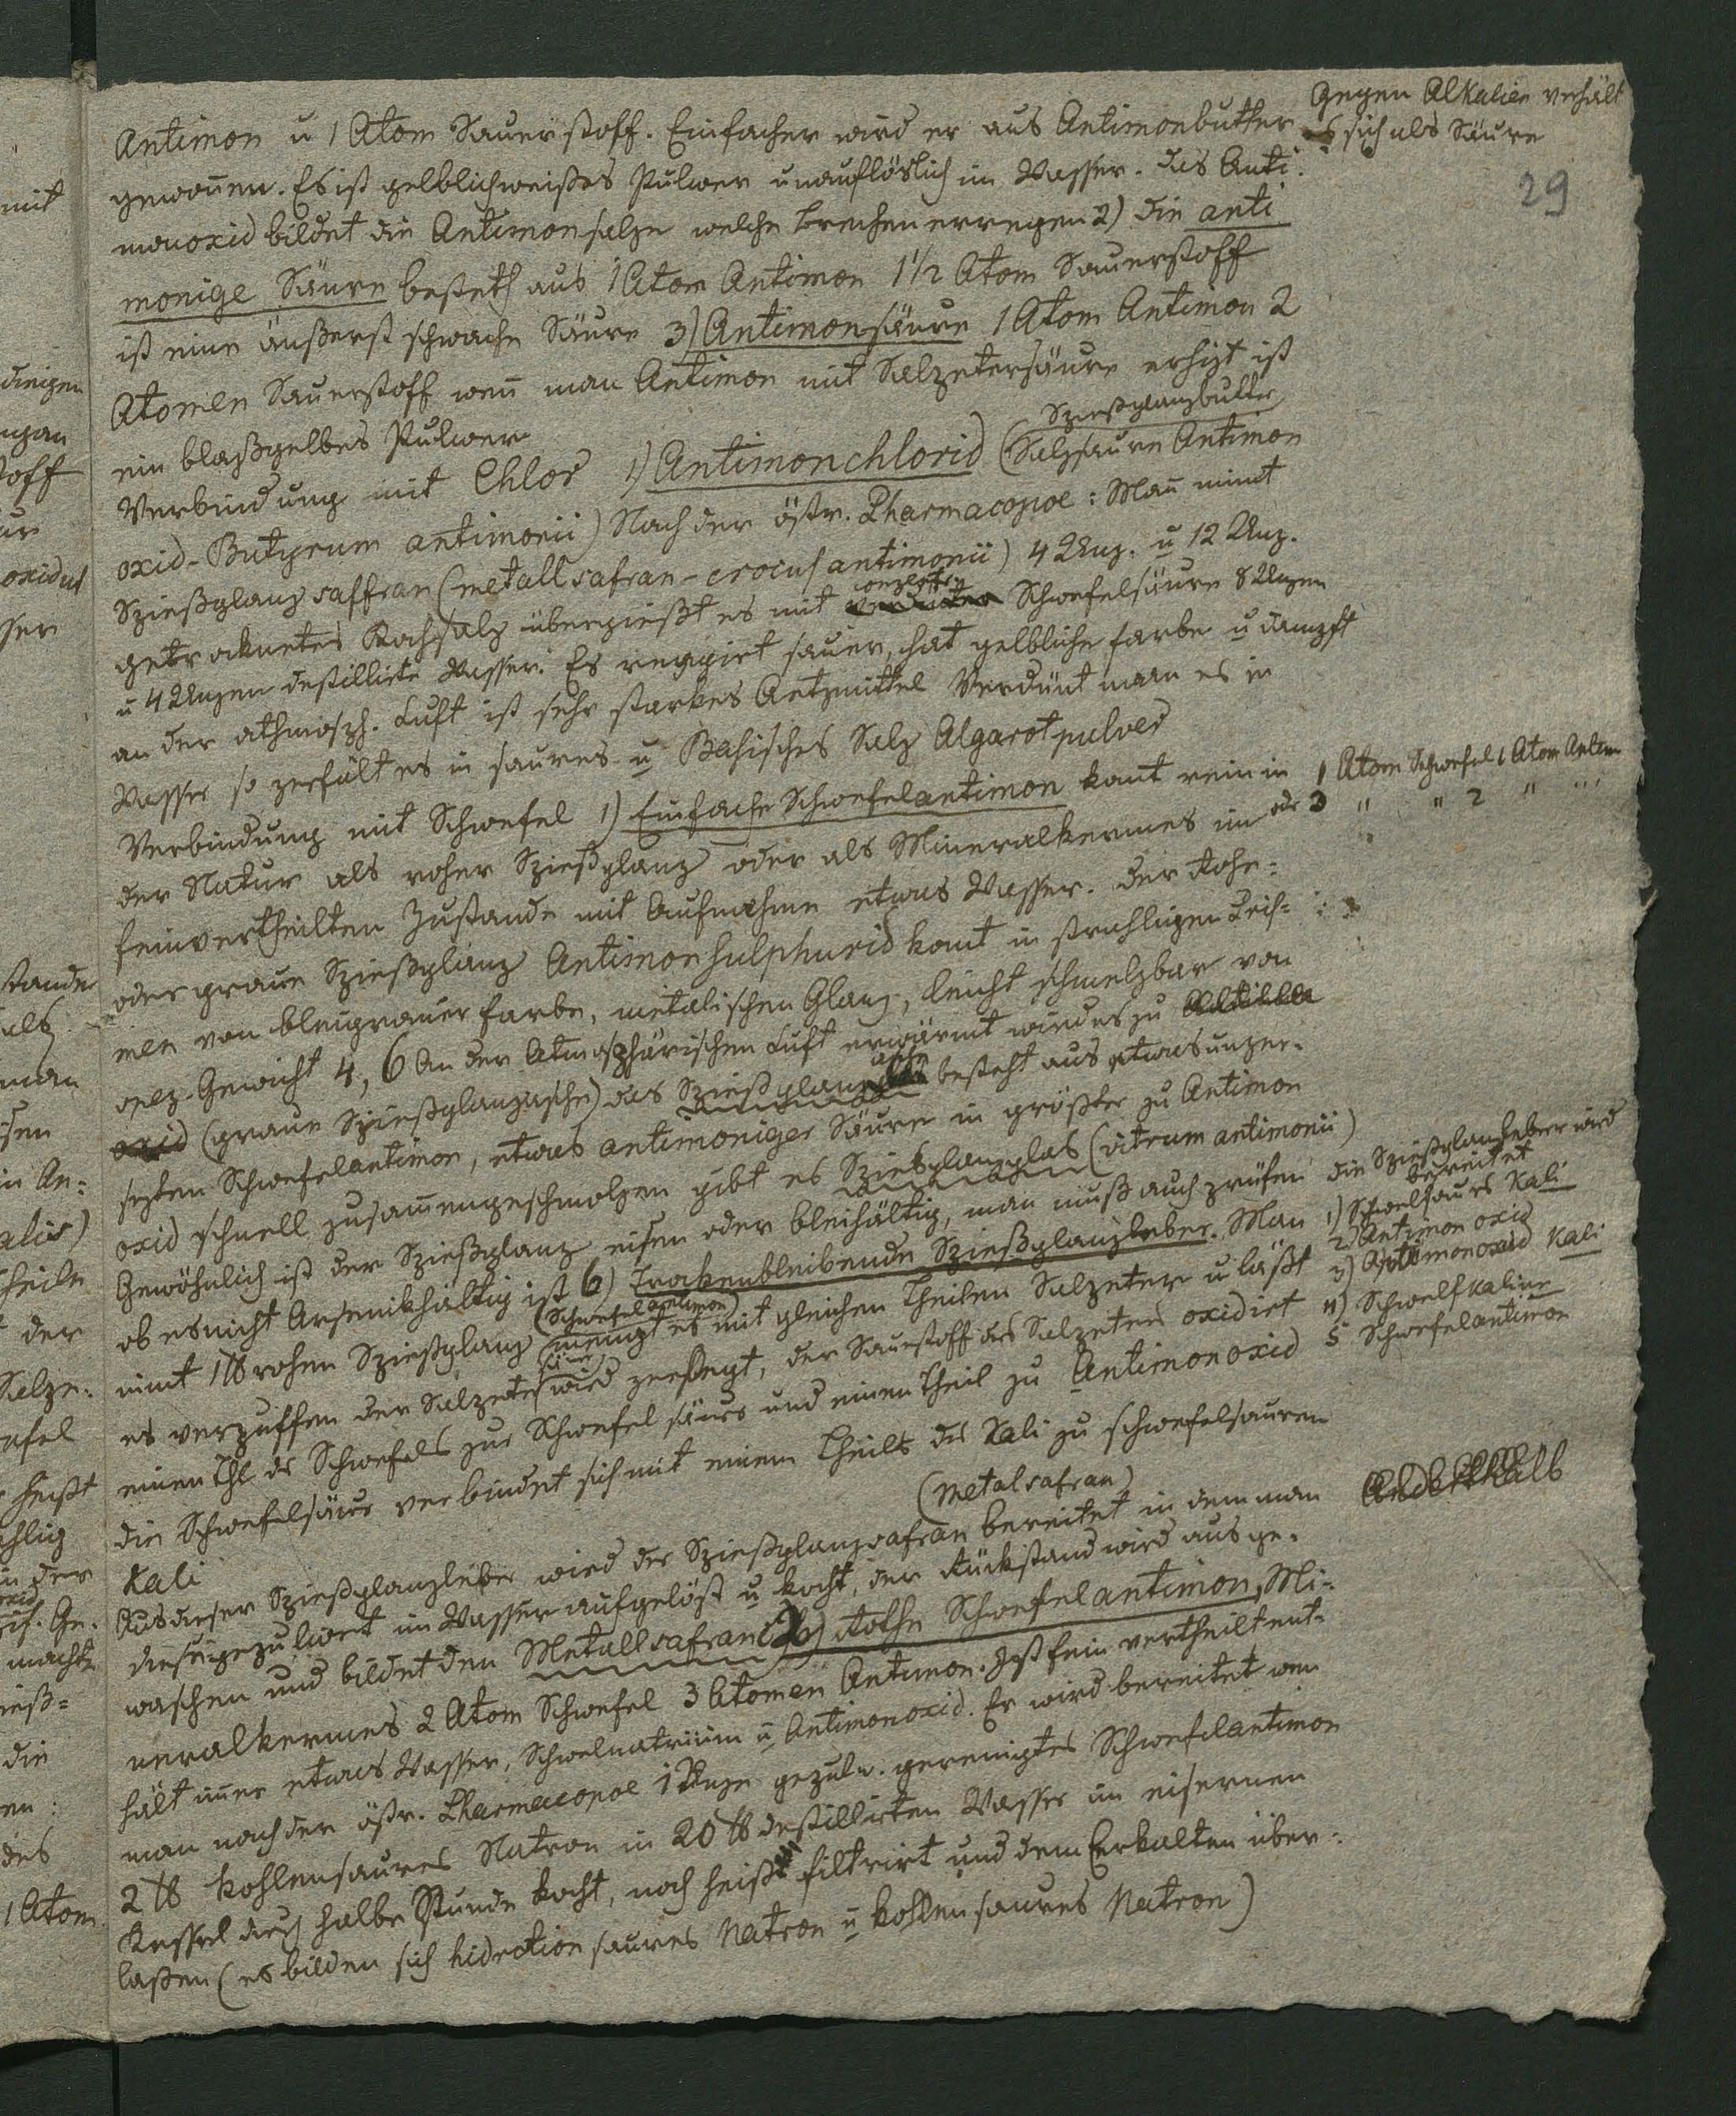 Antimon u 1 Atom Sauerstoff. Einfacher wird er aus Antimonbutter
gewonnen. Es ist gelblichweißes Pulver unauflöslich im Wasser. Das Anti:
monoxid bildet die Antimonsalze welche brechenerregen 2) die anti
monige Säure besteth aus 1 Atom Antimon 1 1/2 Atom Sauerstoff
ist eine äußerst schwache Säure 3) Antimonsäure 1 Atom Antimon 2
Atomen Sauerstoff wen̄ man Antimon mit Salzetersäure erhizt ist
ein blaßgelbes Pulver
Verbindung mit Chlor 1) Antimonchlorid (Salzsaure Antimon
Spießglanzbutter
oxid - Butyrum antimonii) Nach der östr. Pharmacopoe: Man̄ nimt
Spießglanzsaffran (metallsafran - crocus antimonii) 4 Unz. u 12 Unz.
getroknetes Kochsalz übergießt es mit conzentr. Schwefelsäure 8 Unzen
u 4 Unzen destillirte Wasser. Es reagirt sauer, hat gelbliche farbe u dampft
an der athmosph. Luft ist sehr starkes Aetzmittel Verdünt man es in
Wasser so zerfält es in saures u Basisches Salz Algarotpulver
Verbindung mit Schwefel 1) Einfache Schwefelantimon komt rein in
der Natur als roher Spießglanz oder als Mineralkermes im
feinvertheilten Zustande mit Aufnahme etwas Wasser. der Rohe=
oder graue Spießglanz Antimonsulphurid komt in strahligen Pris=
men von bleugrauer farbe, metalischen Glanz, leicht schmelzbar von
spez. Gewicht 4,6 An der Atmosphärischen Luft erwärmt wird es zu
oxid (graue Spießglanzasche) das Spießglanzasche besteht aus etwas unzer=
sezten Schwefelantimon, etwas antimoniger Säure in größter zu Antimon
oxid schnell zusam̄engeschmolzen gibt es Spießglanzglas (vitrum antimonii)
Gewöhnlich ist der Spießglanz eisen oder bleihältig, man muß auch prüfen
ob es nicht Arsenikhältig ist 6) Trokenbleibende Spießglanzleber. Man
nimt 1 ℔ rohen Spießglanz (Schwefelantimon) mengt es mit gleichen Theilen Salzeter u läßt
es verpuffen der Salzetersäure wird zerlegt, der Sauerstoff des Salzeters oxidirt
einen Thl des Schwefels zur Schwefelsäure und einen Theil zu Antimonoxid
die Schwefelsäure verbindet sich mit einem Theile des Kali zu schwefelsauren
Kali
(metalsafran)
Aus dieser Spießglanzleber wird der Spießglanzsafran bereitet in dem man
diese gepulvert im Wasser aufgelöst u kocht, der Rückstand wird ausge=
waschen und bildet den Metallsafran 2) Rothe Schwefelantimon, Mi=
neralkermes 2 Atom Schwefel 3 Atomen Antimon. Ist fein vertheilt ent=
hält im̄er etwas Wasser, Schwefelnatrium u Antimonoxid. Er wird bereitet wen
man nach der östr. Pharmacopoe 1 Unze gepulv. gereinigtes Schwefelantimon
2 ℔ kohlensaures Natron in 20 ℔ destillirten Wasser im eisernen
Kessel durch halbe Stunde kocht, noch heiß filtrirt und dem Erkalten über=
laßen (es bilden sich saures Natron u kohlensaures Natron)
Gegen Alkalien verhält
es sich als Säure
29
1 Atom Schwefel 1 Atom Antim
odr 3 " " 2 " "
die Spießglanzleber wird
bereitet
1) Schwefelsaures Kali
2) Antimon oxid
3) Antimonoxid Kali
4) Schwefkalium
5 Schwefelantimon
mit
dinigen
off
oxidul
sser
stande
als
man
in An:
alis)
heile
der
Salze:
efel
heißt
in der
Ge.
macht
ieß=
die
des
1 Atom